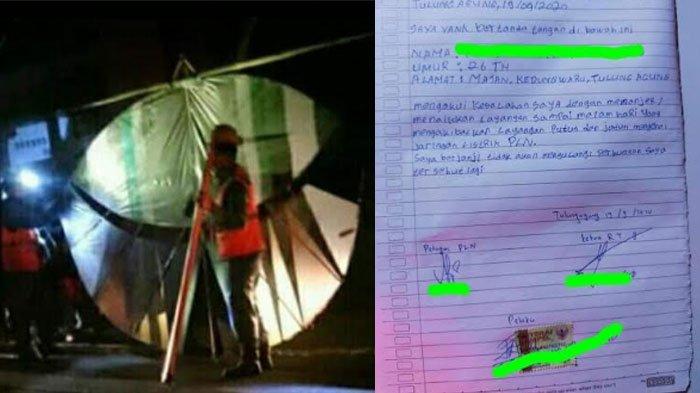 TULUNG AGUNG, 19/09/2020
SAYA YANK bertanda tangan di bawah ini
NAMA :
UMUR : 26 TH
ALAMAT : MAJAN, KEDUNGWARU, TULUNG AGUNG
mengakui kesalahan saya dengan memanjer/
menaikan Layangan sampai malam hari yang
mengakibatkan Layangan Putus dan jatuh mengenai
jaringan Listrik PLN.
Saya berjanji tidak akan mengulangi perbuatan saya
ter sebut lagi
Tulungagung 19/9/2020
Petugas PLN
ketua RT
Pelaku